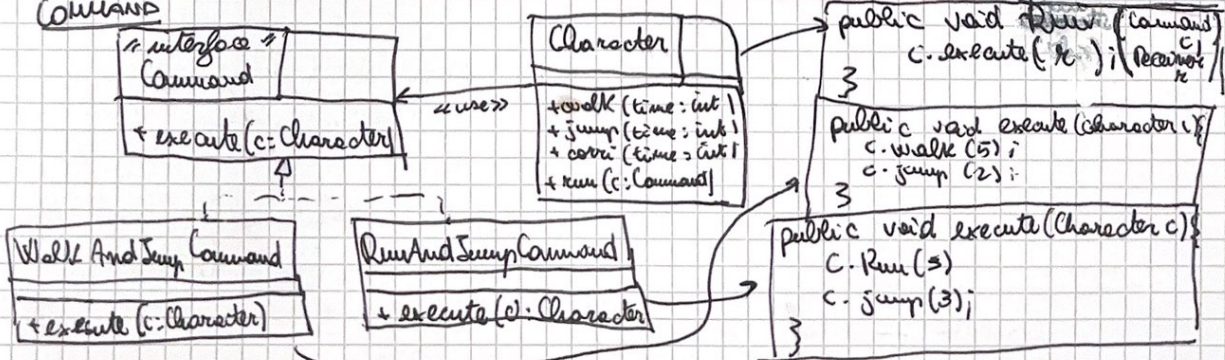 COMMAND
"interface"
Command
+ execute(c: Character)
<<use>>
Character
+walk (time: int)
+ jump (time: int)
+ corri (time: int)
+ run (c: Command)
WalkAndJump Command
+ execute (c: Character)
RunAndJumpCommand
+ execute (c): Character
public void Run (Command c, Receiver r)
c. execute( r );
}
public void execute (Character c){
c. walk (5);
c. jump (2);
}
public void execute (Character c){
C. Run (5)
C. jump (3);
}